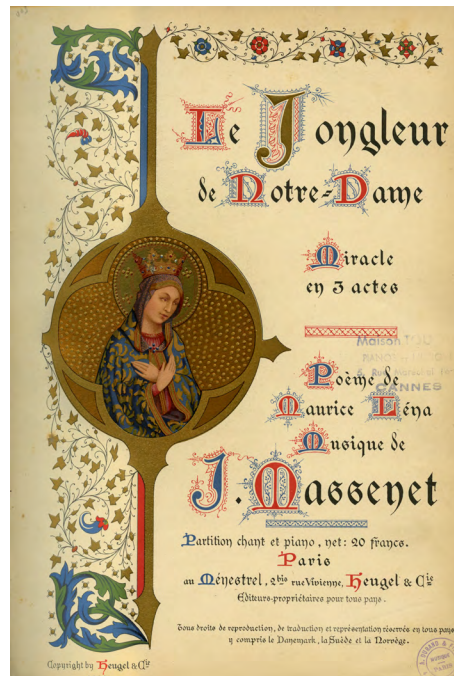 Le Jongleur
de Notre-Dame
Miracle
en 3 actes
Maison
PIANOS
CANNES
Poème de
Maurice Léna
Musique de
J. Massenet
Partition chant et piano, net: 20 francs.
Paris
au Ménestrel, 2bis rue Vivienne, Heugel & Cie
Editeurs-propriétaires pour tous pays.
Tous droits de reproduction, de traduction et représentation réservés en tous pays
y compris le Danemark, la Suède et la Norvège.
Copyright by Heugel & Cie